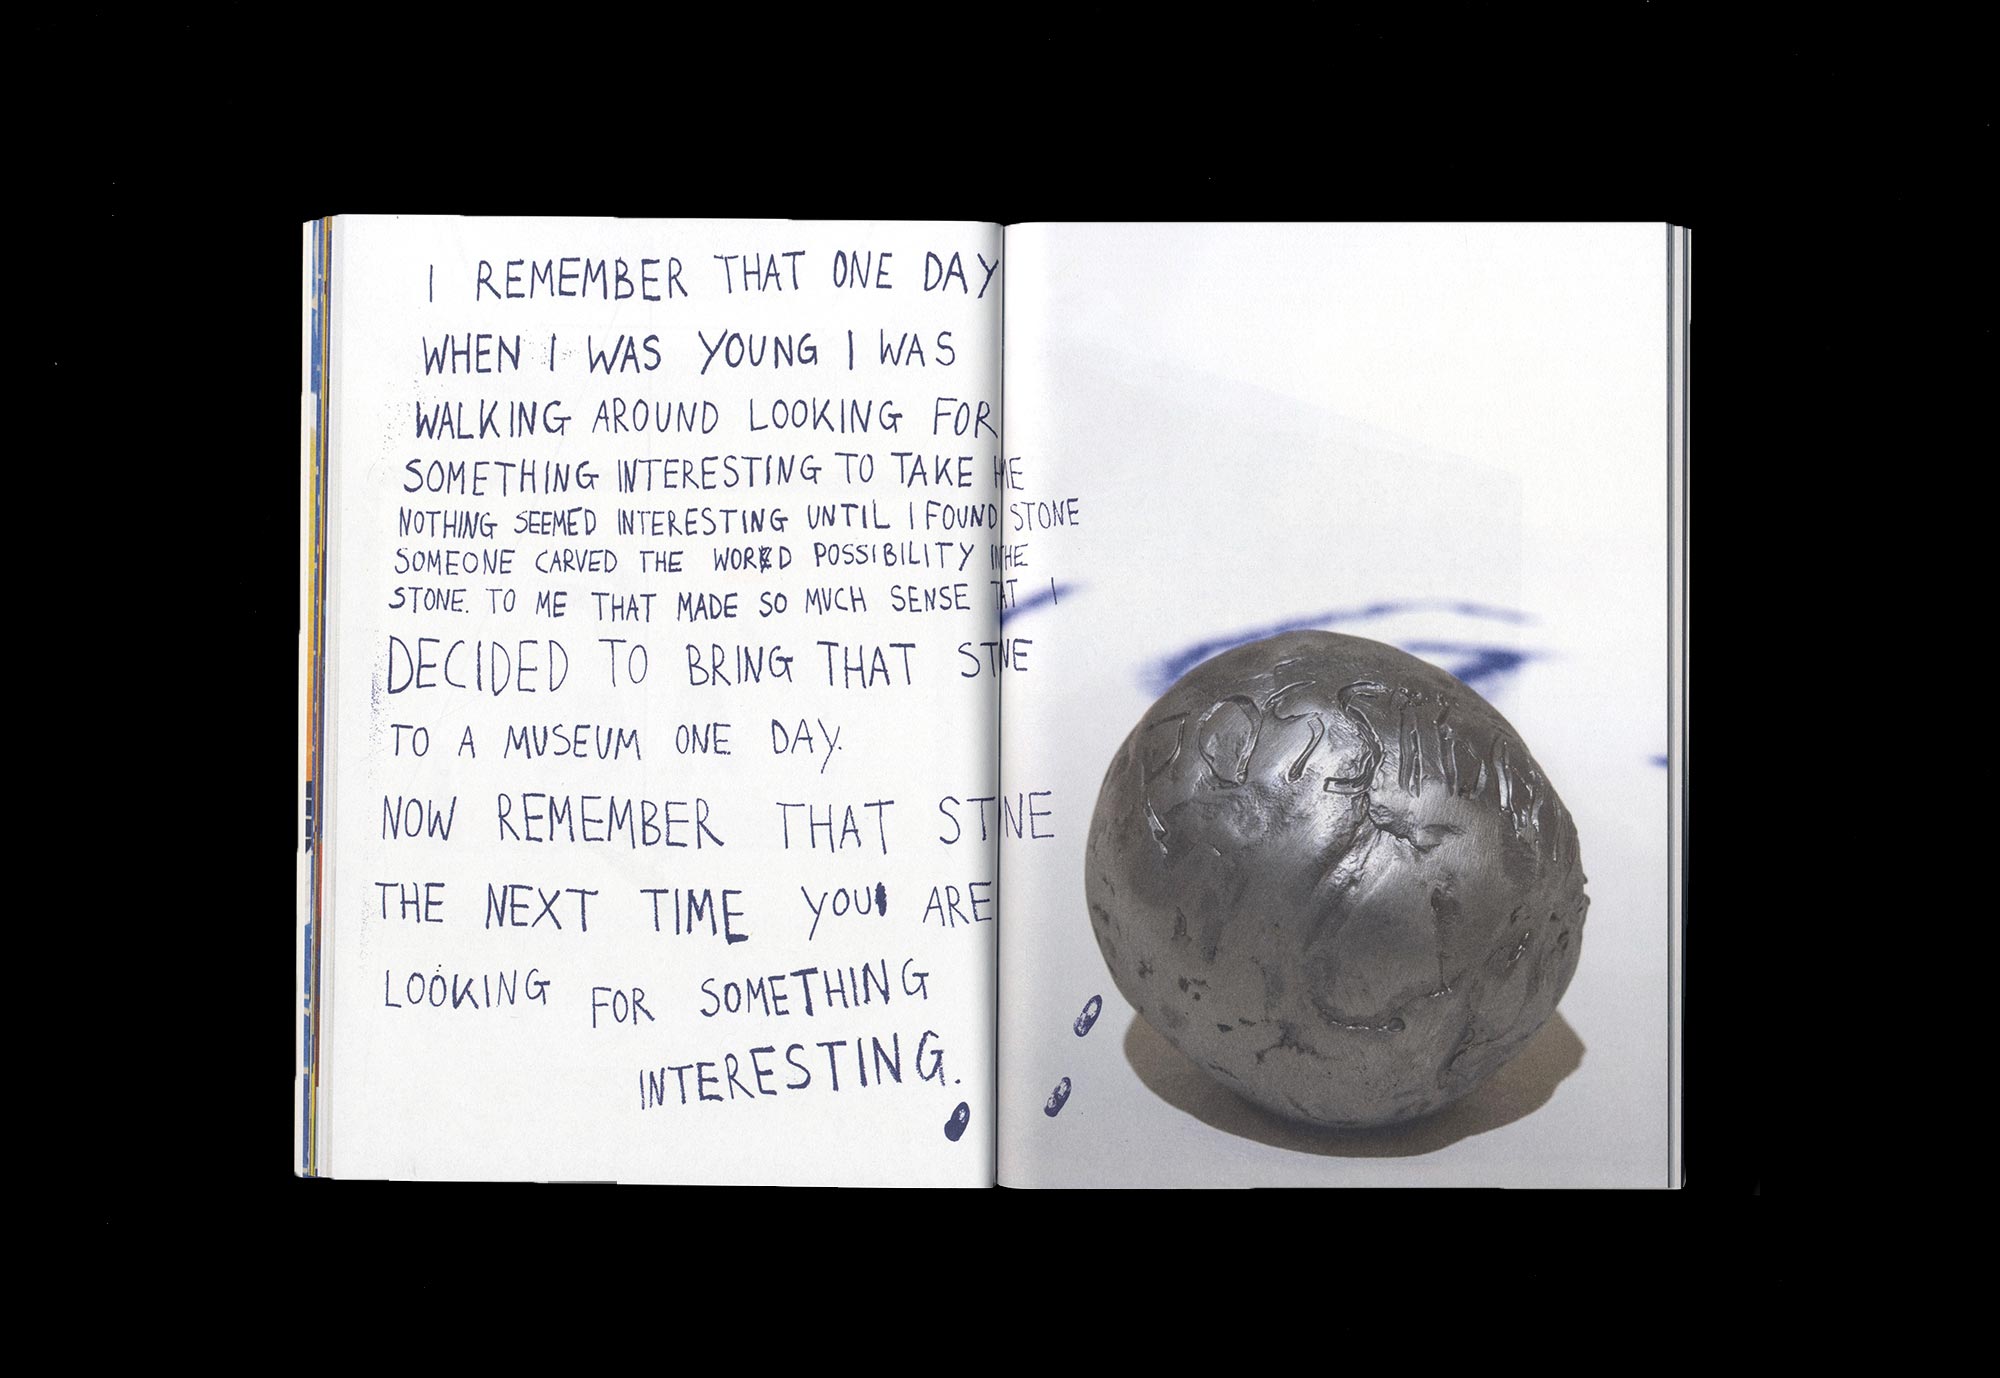 I REMEMBER THAT ONE DAY
WHEN I WAS YOUNG I WAS
WALKING AROUND LOOKING FOR
SOMETHING INTERESTING TO TAKE HME
NOTHING SEEMED INTERESTING UNTIL I FOUND STONE
SOMEONE CARVED THE WORD POSSIBILITY INHE
STONE. TO ME THAT MADE SO MUCH SENSE TAT I
DECIDED TO BRING THAT STNE
TO A MUSEUM ONE DAY.
NOW REMEMBER THAT STNE
THE NEXT TIME YOU ARE
LOOKING FOR SOMETHING
INTERESTING.